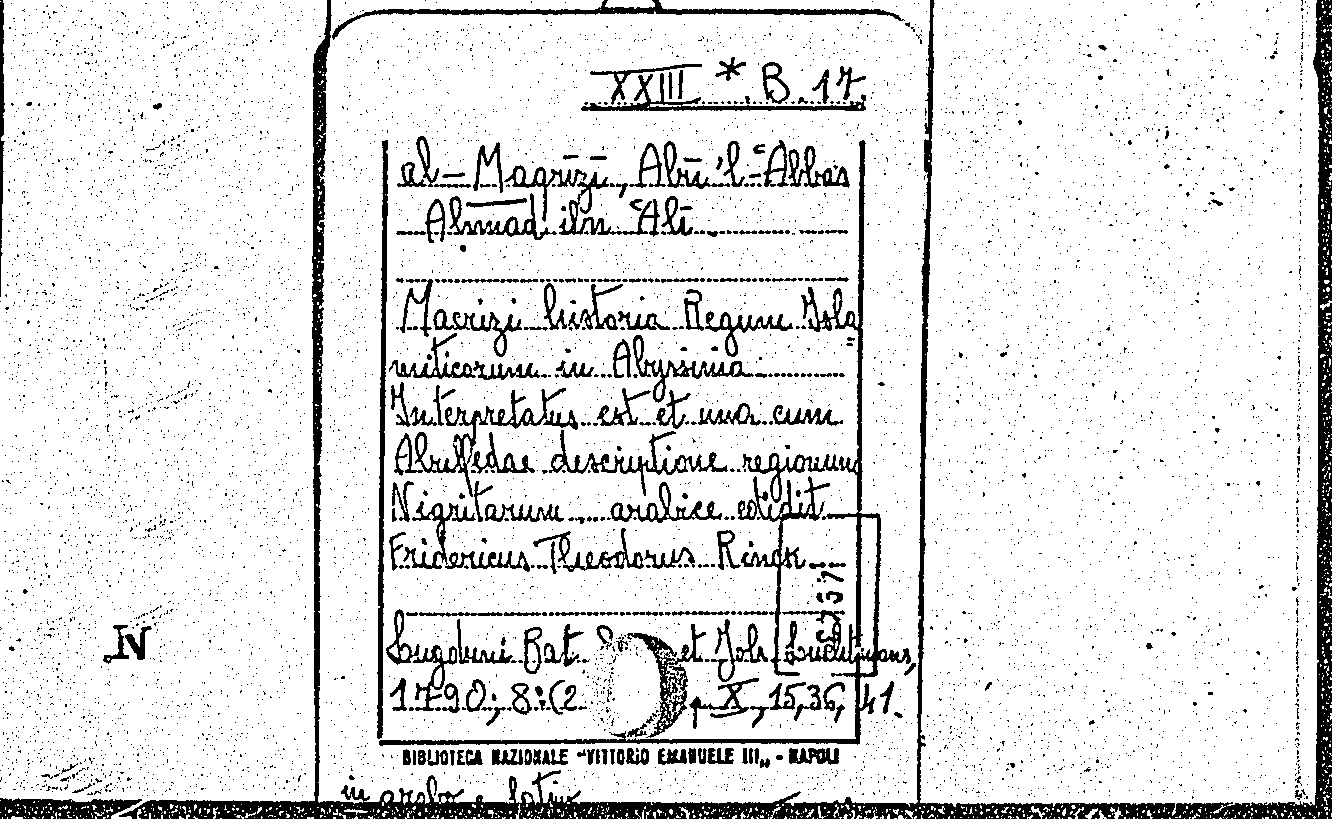 XXIII * B. 17.
al-Maqrīzī, Abū 'l-ʿAbbās
Aḥmad ibn ʿAlī.
Macrizi historia Regum Isla
"
miticorum in Abyssinia
Interpretatus est et una cum
Abulfedae descriptione regionum
Nigritarum, arabice edidit
Fridericus Theodorus Rinck
Lugduni Bat. et Joh. Luchtmans,
1790; 8: (2 p. X, 15, 36, 41.
BIBLIOTECA NAZIONALE "VITTORIO EMANUELE III„ - NAPOLI
in arabo e latino
N